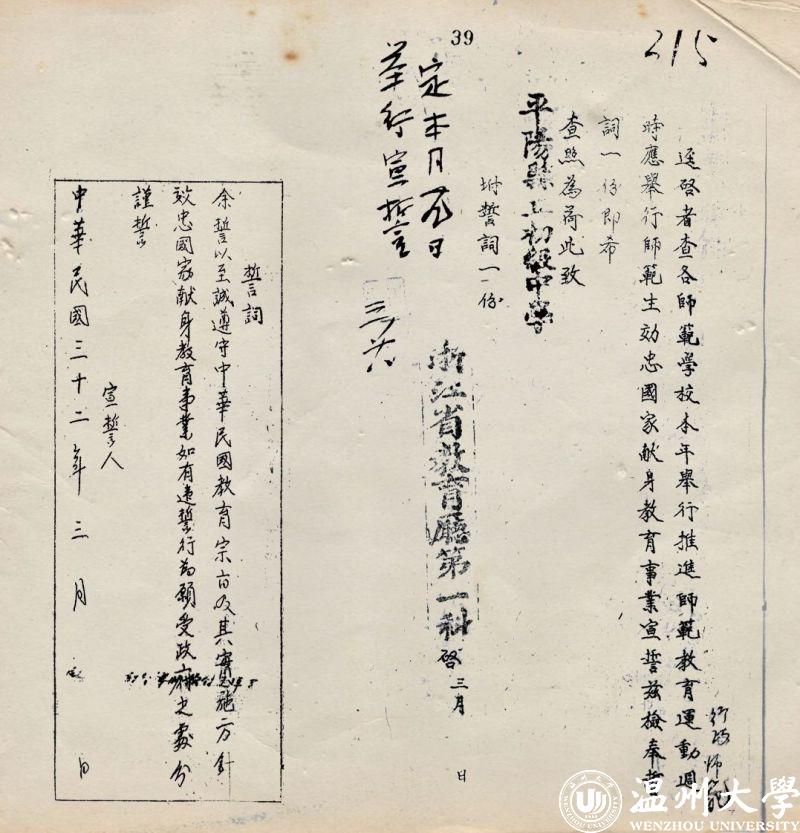 215
39
逕啓者查各師範學校本年舉行推進師範教育運動週
時應舉行師範生効忠國家献身教育事業宣誓兹檢奉誓
詞一份即希
查照為荷此致
平陽縣立初級中學
坿誓詞一份
浙江省教育廳第一科啓 三月 日
定本月 日
舉行宣誓
誓詞
余誓以至誠遵守中華民國教育宗旨及其實施方針
効忠國家献身教育事業如有違誓行為願受政府之處分
謹誓
宣誓人
中華民國三十二年三月 日
温州大学
WENZHOU UNIVERSITY